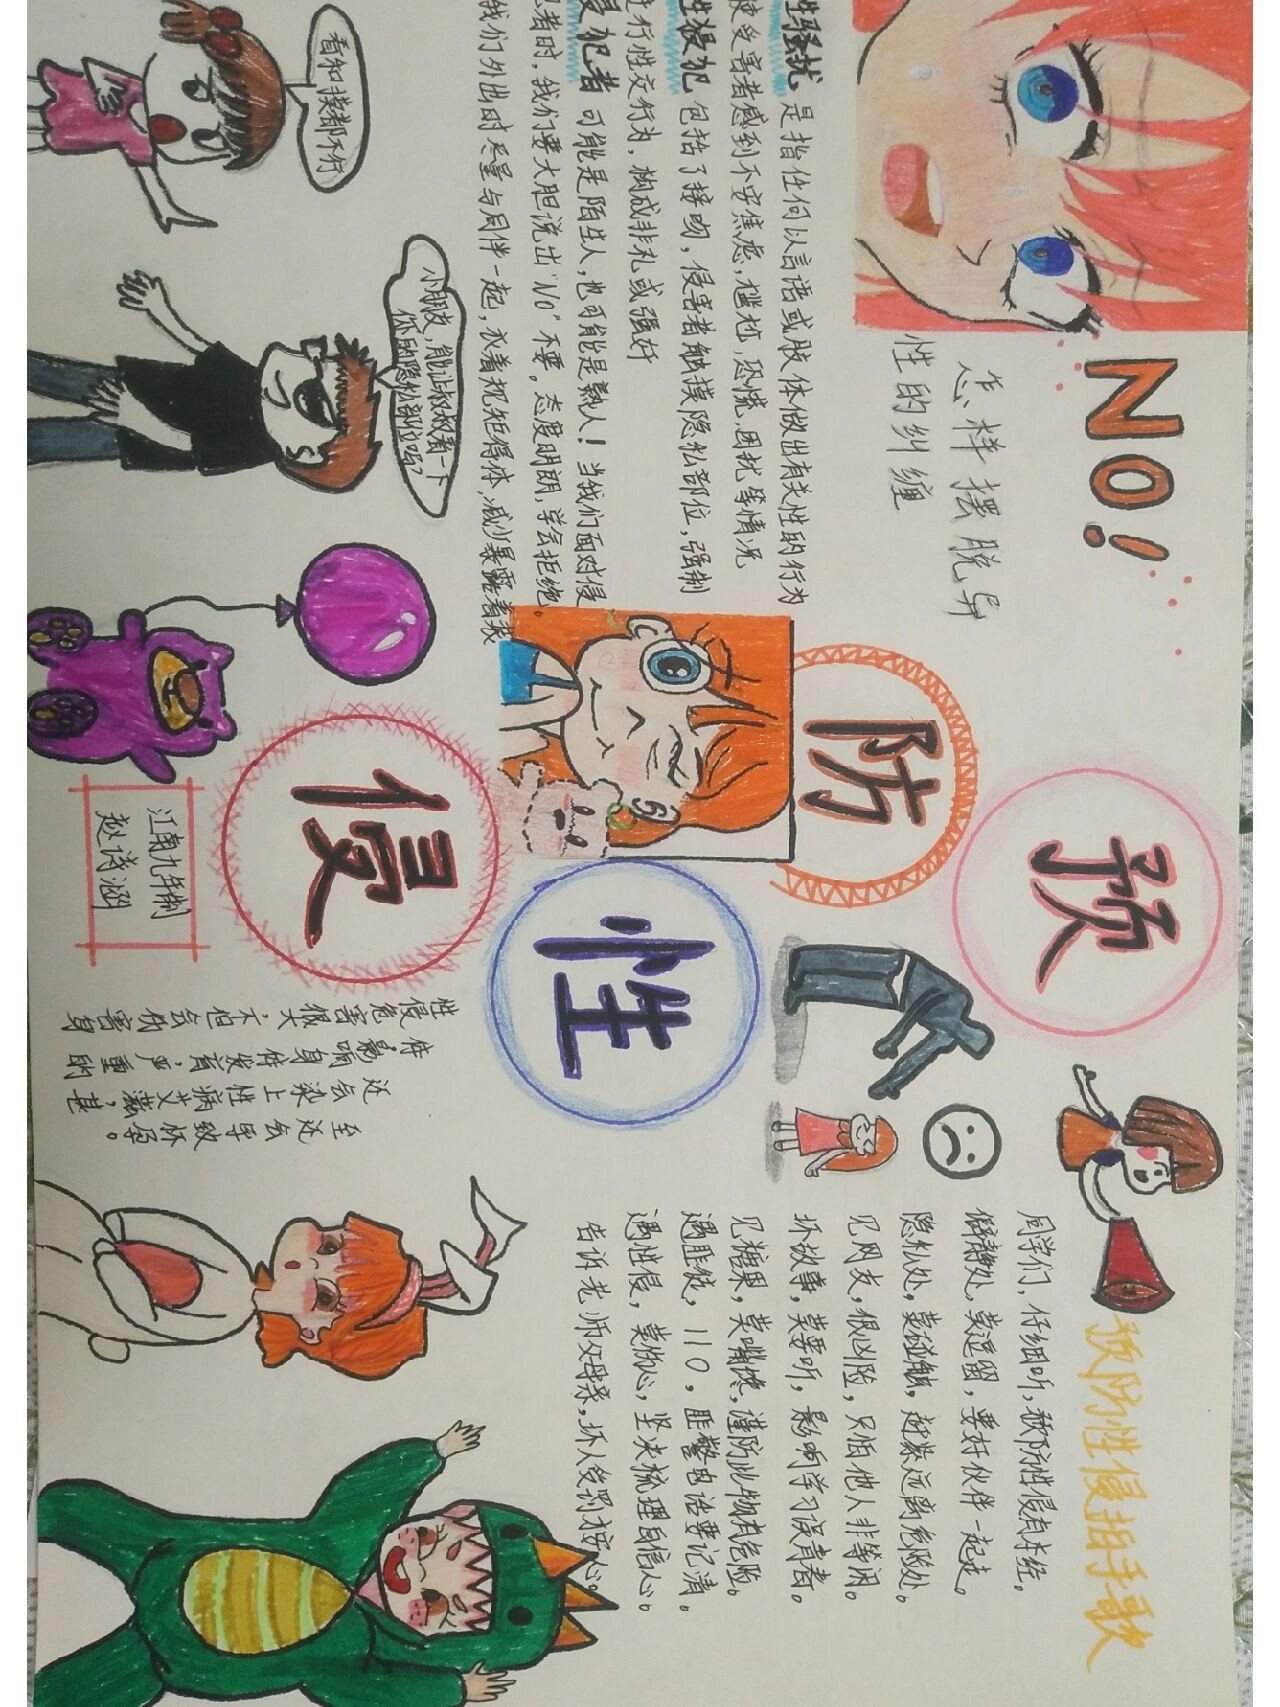 NO!
怎样摆脱异
性的纠缠
性骚扰 是指任何以言语或肢体做出有关性的行为
使受害者感到不安焦虑,尴尬,恐慌,困扰等情况
性侵犯 包括了接吻,侵害者触摸隐私部位,强制
进行性交行为,构成非礼或强奸
侵犯者 可能是陌生人,也可能是熟人!当我们面对侵
犯者时,我们要大胆说出“NO”不要,态度明朗,学会拒绝。
我们外出时尽量与同伴一起,衣着规矩得体,减少暴露着装
小朋友,能让叔叔看一下
你的隐私部位吗?
看和摸都不行
预
防
性
侵
江南九年制
赵诗涵
预防性侵拍手歌
同学们,仔细听,预防性侵有本经。
僻静处,莫逗留,要好伙伴一起走。
隐私处,莫碰触,赶紧远离危险处。
见网友,很凶险,只怕他人非等闲。
坏故事,莫要听,影响学习误青春。
见糖果,莫嘴馋,谨防此物有危险。
遇匪徒,110,匪警电话要记清。
遇性侵,莫灰心,坚决梳理自信心。
告诉老师父母亲,坏人受罚才安心。
性侵危害很大,不但会伤害身
体,影响身体发育,严重的
还会染上性病艾滋,甚
至还会导致怀孕。